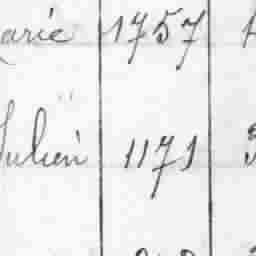 arie 1757
Julien 1171